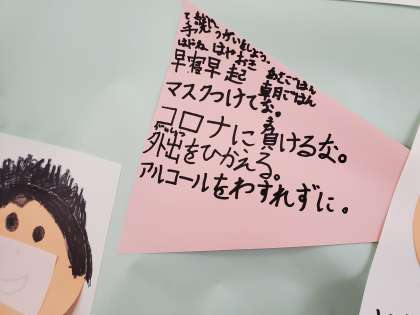 手洗いうがいをしよう。
はやね はやおき
早寝早起
あさごはん
朝ごはん
マスクつけてな。
ま
コロナに負けるな。
がいしゅつ
外出をひかえる。
アルコールをわすれずに。